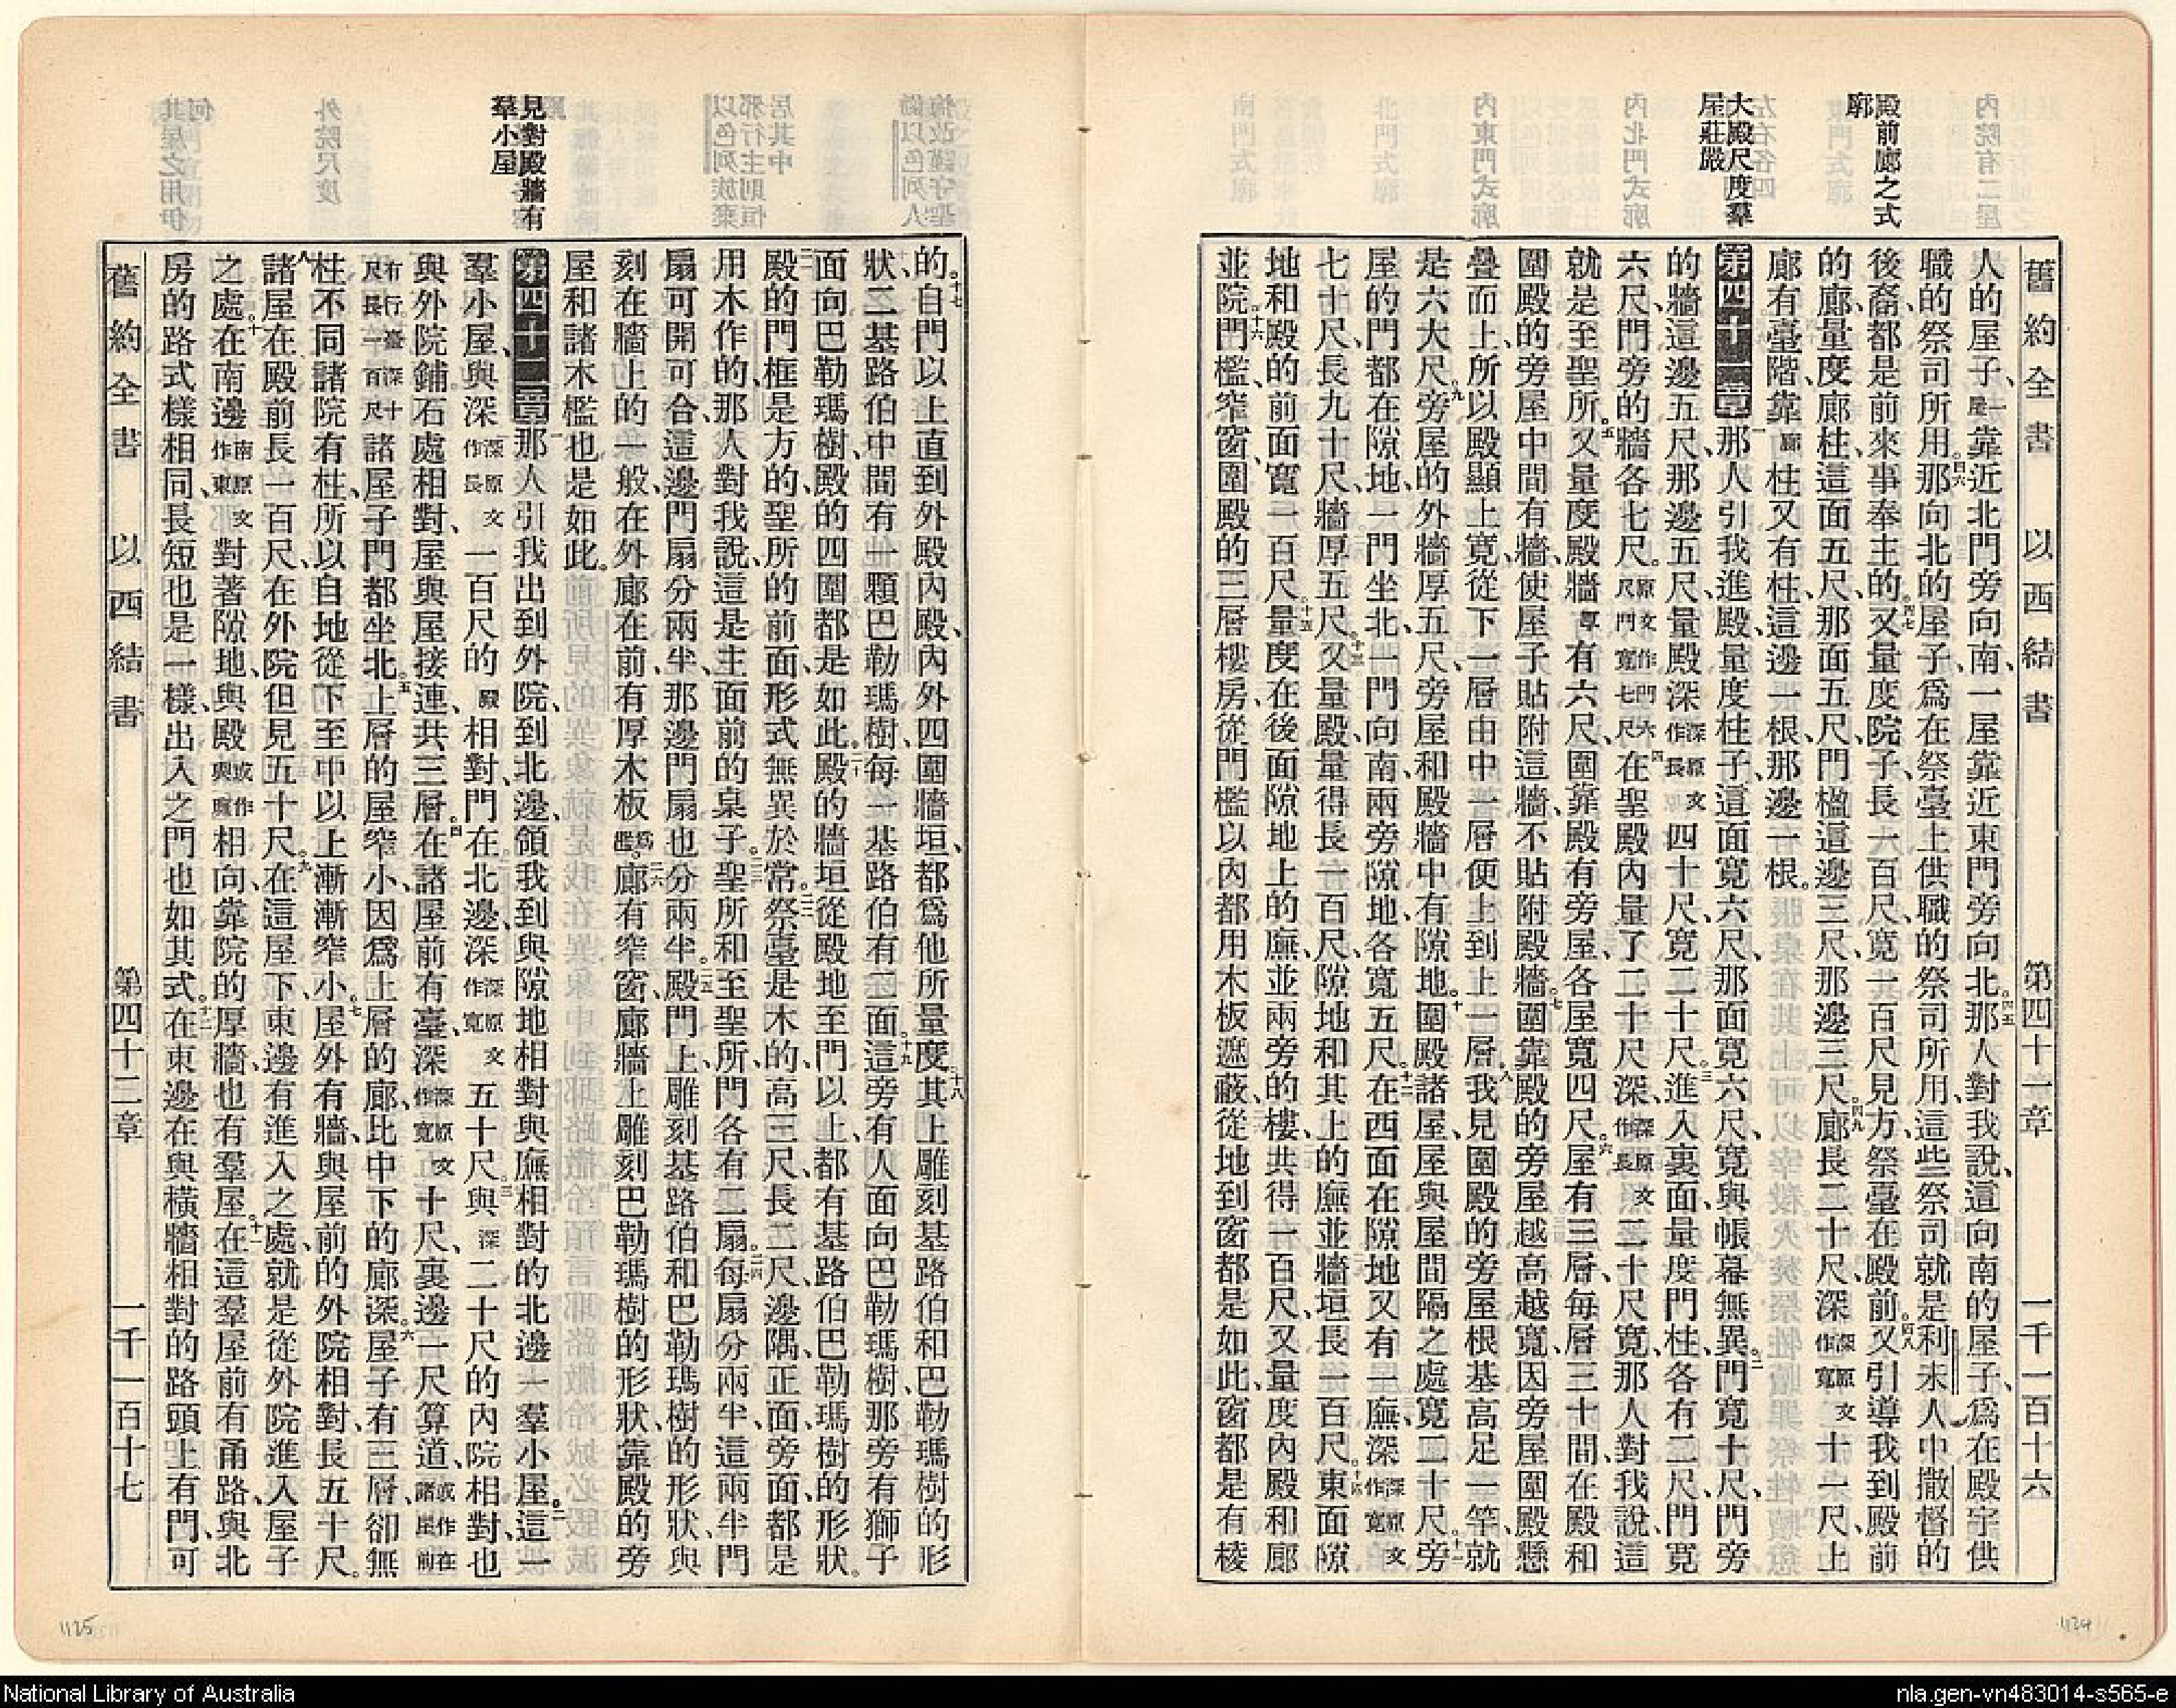 舊約全書 以西結書 第四十一章 一千一百十六
殿前廊之式
廓
大殿尺度羣
屋莊嚴
人的屋子、一屋靠近北門旁向南、一屋靠近東門旁向北。四五那人對我說、這向南的屋子、爲在殿宇供
職的祭司所用。四六那向北的屋子、爲在祭臺上供職的祭司所用、這些祭司就是利未人中撒督的
後裔、都是前來事奉主的。四七又量度院子、長一百尺、寬一百尺見方、祭臺在殿前。四八又引導我到殿前
的廊、量度廊柱、這面五尺、那面五尺、門楹這邊三尺、那邊三尺。四九廊長二十尺、深深原文作寬十一尺、上
廊有臺階、靠廊柱又有柱、這邊一根、那邊一根。
第四十一章一那人引我進殿、量度柱子、這面寬六尺、那面寬六尺、寬與帳幕無異。二門寬十尺、門旁
的牆這邊五尺、那邊五尺、量殿深深原文作長四十尺、寬二十尺。三進入裏面、量度門柱、各有二尺、門寬
六尺、門旁的牆各七尺。原文作門六尺門寬七尺四在聖殿內量了二十尺深、深原文作長二十尺寬、那人對我說、這
就是至聖所。五又量度殿牆厚有六尺、圍靠殿有旁屋、各屋寬四尺。六屋有三層、每層三十間、在殿和
圍殿的旁屋中間有牆、使屋子貼附這牆、不貼附殿牆。七圍靠殿的旁屋越高越寬、因旁屋圍殿懸
疊而上、所以殿顯上寬、從下一層由中一層便上到上一層。八我見圍殿的旁屋根基高足一竿、就
是六大尺。九旁屋的外牆厚五尺、旁屋和殿牆中有隙地。十圍殿諸屋、屋與屋間隔之處寬二十尺。十一旁
屋的門都在隙地、一門坐北、一門向南、兩旁隙地、各寬五尺。十二在西面在隙地又有一廡、深深原文作寬
七十尺、長九十尺、牆厚五尺。十三又量殿、量得長一百尺、隙地和其上的廡並牆垣長一百尺。十四東面隙
地和殿的前面寬一百尺。十五量度在後面隙地上的廡、並兩旁的樓、共得一百尺、又量度內殿和廊
並院門。十六檻、窄窗、圍殿的三層樓房、從門檻以內都用木板遮蔽、從地到窗都是如此、窗都是有棱
見對殿牆有
羣小屋
的。十七自門以上直到外殿內殿、內外四圍牆垣、都爲他所量度。十八其上雕刻基路伯和巴勒瑪樹的形
狀、二基路伯中間有一顆巴勒瑪樹、每一基路伯有二面。十九這旁有人面向巴勒瑪樹、那旁有獅子
面向巴勒瑪樹、殿的四圍都是如此。二十殿的牆垣從殿地至門以上、都有基路伯巴勒瑪樹的形狀。
二一殿的門框是方的、聖所的前面、形式無異於常。二二祭臺是木的、高三尺、長二尺、邊隅、正面、旁面、都是
用木作的、那人對我說、這是主面前的桌子。二三聖所和至聖所、門各有二扇。二四每扇分兩半、這兩半門
扇可開可合、這邊門扇分兩半、那邊門扇也分兩半。二五殿門上、雕刻基路伯和巴勒瑪樹的形狀、與
刻在牆上的一般、在外廊在前有厚木板爲檻。二六廊有窄窗、廊牆上雕刻巴勒瑪樹的形狀、靠殿的旁
屋和諸木檻也是如此。
第四十二章一那人引我出到外院、到北邊、領我到與隙地相對與廡相對的北邊一羣小屋。二這一
羣小屋、與深深原文作長一百尺的殿相對、門在北邊、深深原文作寬五十尺。三與深二十尺的內院相對、也
與外院鋪石處相對、屋與屋接連、共三層。四在諸屋前有臺、深深原文作寬十尺、裏邊一尺算道、或作在諸屋前
有行臺深十尺長一百尺諸屋子門都坐北。五上層的屋窄小、因爲上層的廊、比中下的廊深。六屋子有三層、卻無
柱、不同諸院有柱、所以自地從下至中以上漸漸窄小。七屋外有牆、與屋前的外院相對、長五十尺。
八諸屋在殿前長一百尺、在外院但見五十尺。九在這屋下、東邊有進入之處、就是從外院進入屋子
之處。十在南邊南原文作東對著隙地、與殿與殿或作與廡相向、靠院的厚牆也有羣屋。十一在這羣屋前有甬路、與北
房的路式樣相同、長短也是一樣、出入之門也如其式。十二在東邊在與橫牆相對的路頭上有門、可
舊約全書 以西結書 第四十二章 一千一百十七
1125
1124
National Library of Australia
nla.gen-vn483014-s565-e